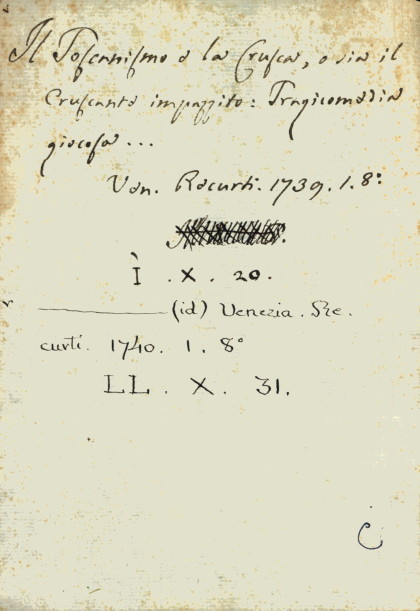 Il Toscanismo e la Crusca, o sia il
Cruscante impazzito: Tragicomedia
giocosa...
Ven. Recurti. 1739. 1. 8°
Ì . X . 20.
(id) Venezia. Re-
curti. 1740. 1. 8°
LL. X. 31.
C